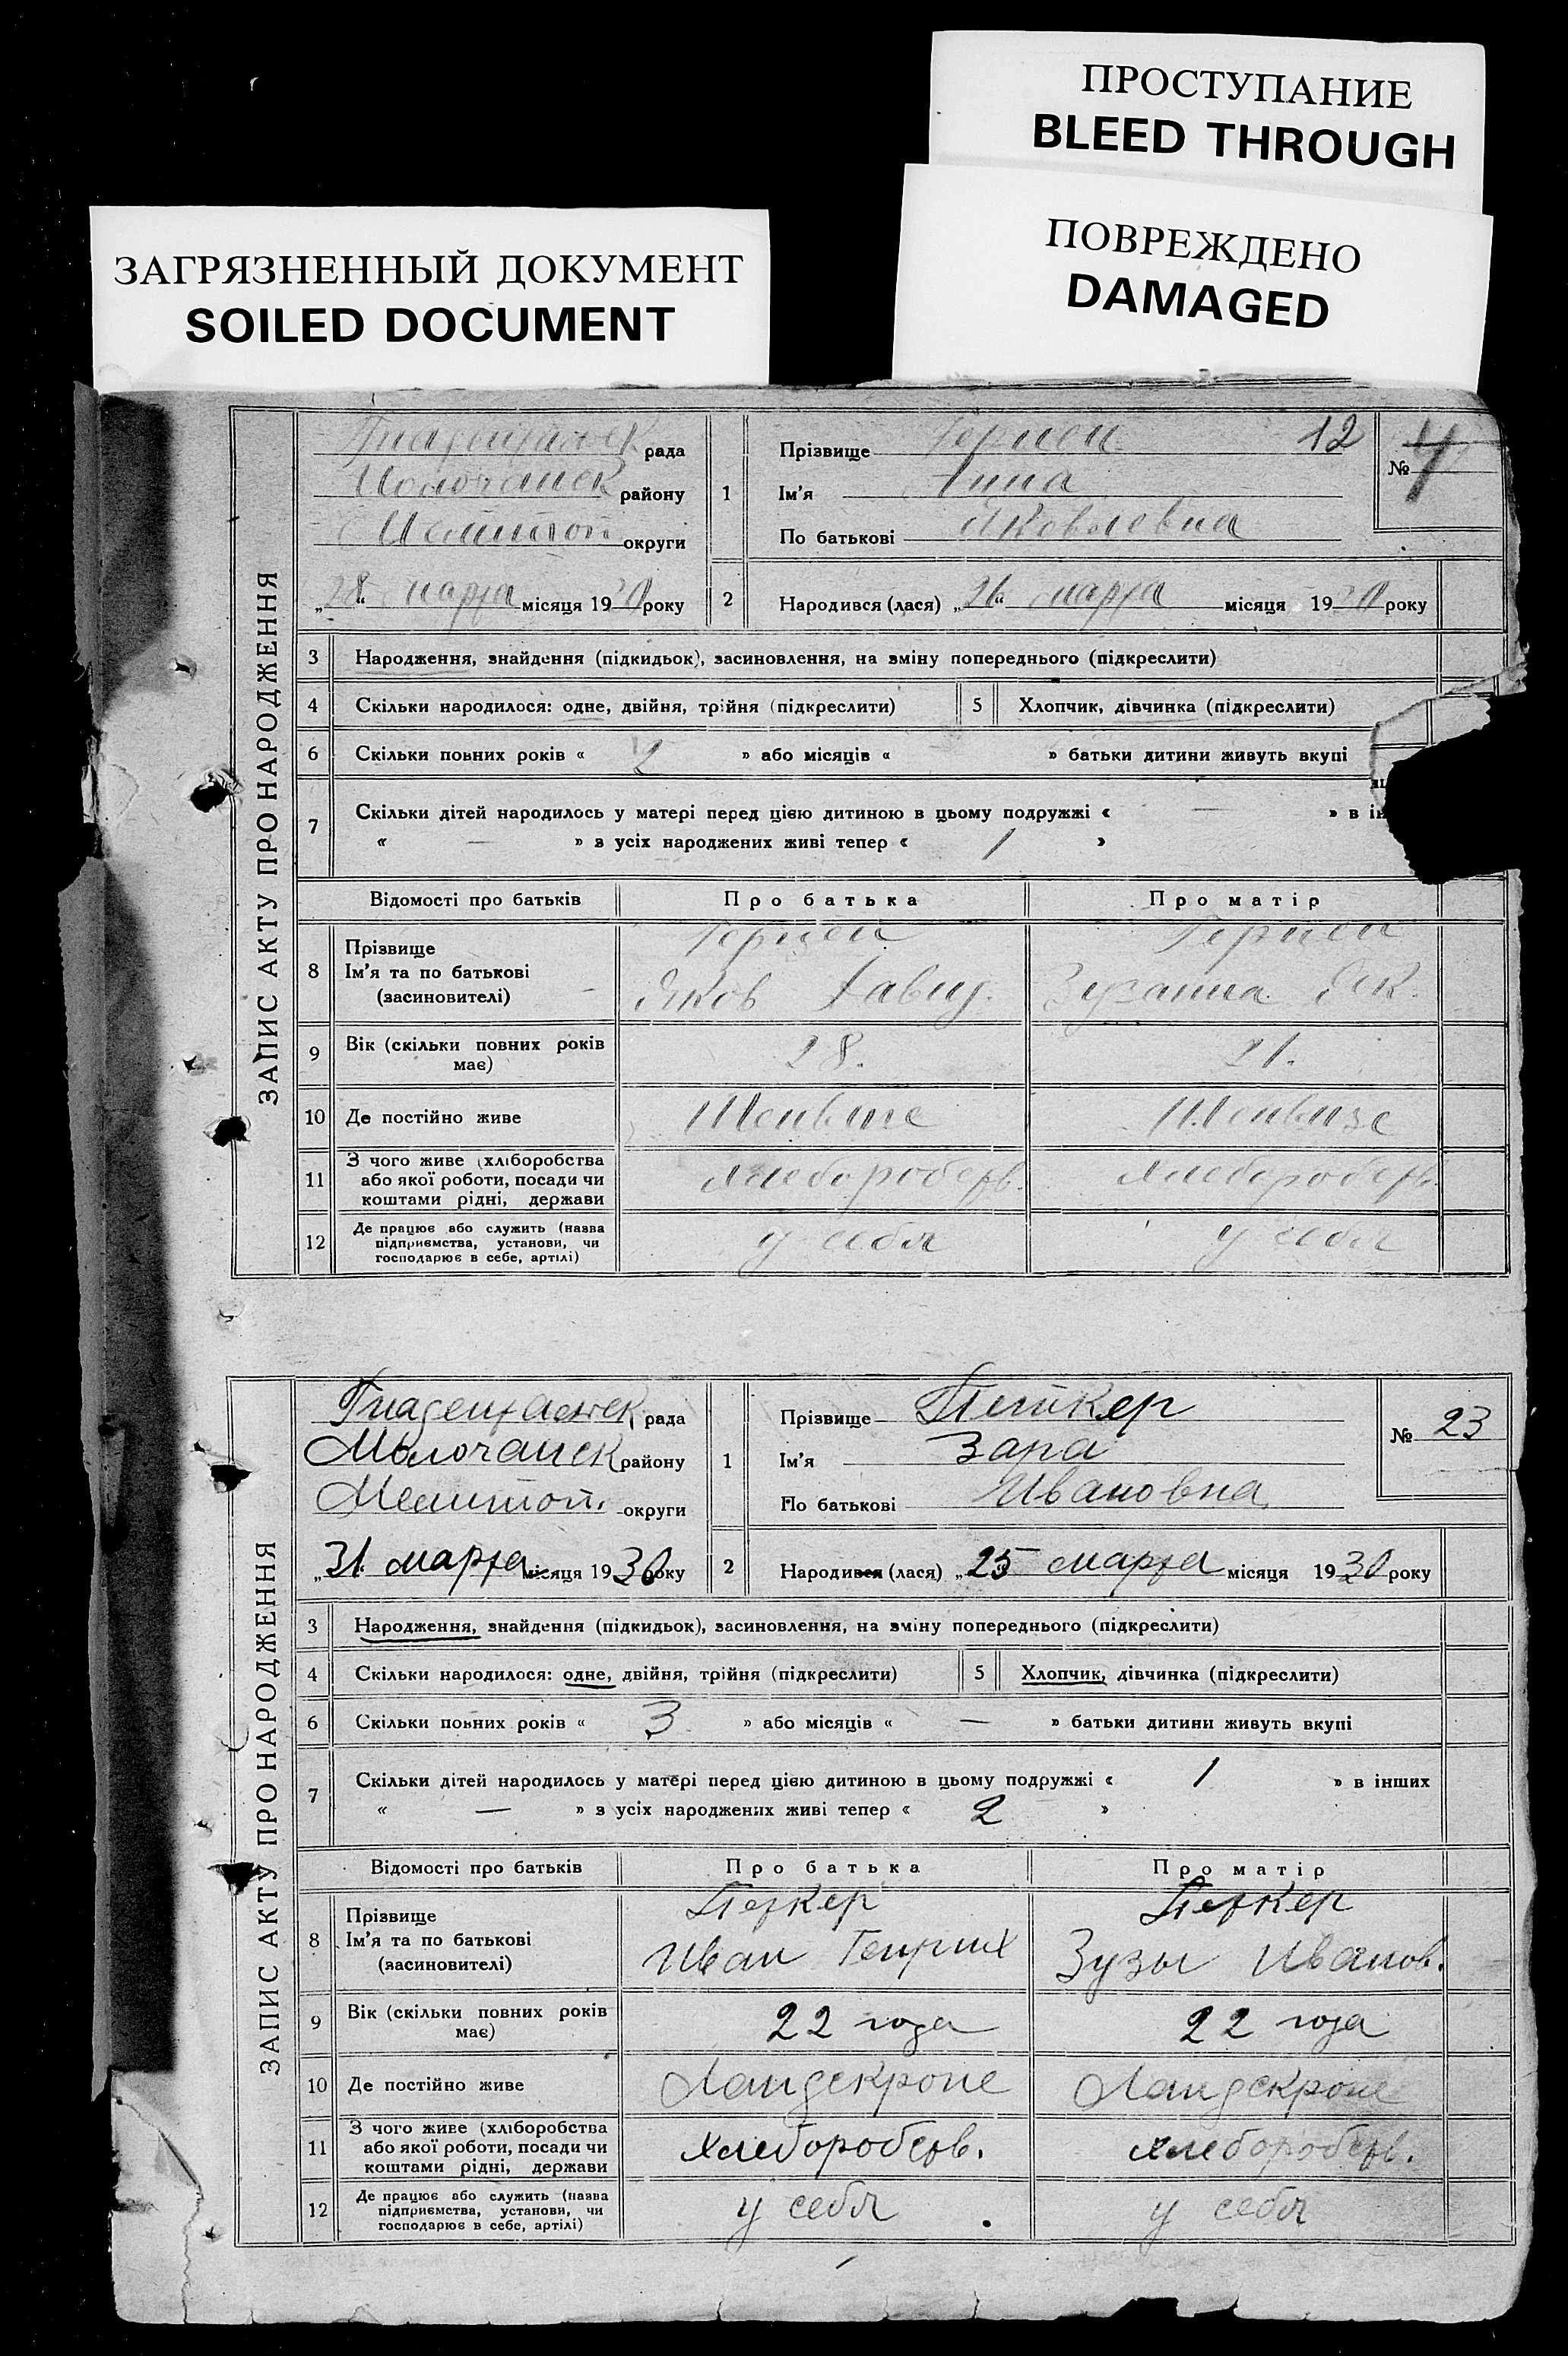 ПРОСТУПАНИЕ
BLEED THROUGH
ПОВРЕЖДЕНО
DAMAGED
ЗАГРЯЗНЕННЫЙ ДОКУМЕНТ
SOILED DOCUMENT
ЗАПИС АКТУ ПРО НАРОДЖЕННЯ
рада
Молочанск району
Мелитоп округи
„28“ марта місяця 1930 року
1 Прізвище 12
Ім'я Анна
По батькові Яковлевна
№ 4
2 Народився (лася) „26“ марта місяця 1930 року
3 Народження, знайдення (підкидьок), засиновлення, на зміну попереднього (підкреслити)
4 Скільки народилося: одне, двійня, трійня (підкреслити) 5 Хлопчик, дівчинка (підкреслити)
6 Скільки повних років « 2 » або місяців « » батьки дитини живуть вкупі
7 Скільки дітей народилось у матері перед цією дитиною в цьому подружжі « — » в ін
« — » з усіх народжених живі тепер « 1 »
Відомості про батьків Про батька Про матір
8 Прізвище
Ім'я та по батькові
(засиновителі)
Яков Давид. Зузанна Як.
9 Вік (скільки повних років має) 28. 21.
10 Де постійно живе
11 З чого живе (хліборобства або якої роботи, посади чи коштами рідні, держави хлеборобств. хлеборобств.
12 Де працює або служить (назва підприємства, установи, чи господарює в себе, артілі) у себя у себя
ЗАПИС АКТУ ПРО НАРОДЖЕННЯ
Гнадентальск рада
Молочанск району
Мелитоп. округи
„31. марта місяця 1930 року
1 Прізвище Петкер
Ім'я Зара
По батькові Ивановна
№ 23
2 Народився (лася) „25 марта місяця 1930 року
3 Народження, знайдення (підкидьок), засиновлення, на зміну попереднього (підкреслити)
4 Скільки народилося: одне, двійня, трійня (підкреслити) 5 Хлопчик, дівчинка (підкреслити)
6 Скільки повних років « 3 » або місяців « — » батьки дитини живуть вкупі
7 Скільки дітей народилось у матері перед цією дитиною в цьому подружжі « 1 » в інших
« — » з усіх народжених живі тепер « 2 »
Відомості про батьків Про батька Про матір
8 Прізвище Петкер Петкер
Ім'я та по батькові Иван Генрих Зузы Иванов.
(засиновителі)
9 Вік (скільки повних років має) 22 года 22 года
10 Де постійно живе Ландскроне Ландскроне
11 З чого живе (хліборобства або якої роботи, посади чи коштами рідні, держави хлеборобств. хлеборобств.
12 Де працює або служить (назва підприємства, установи, чи господарює в себе, артілі) у себя у себя